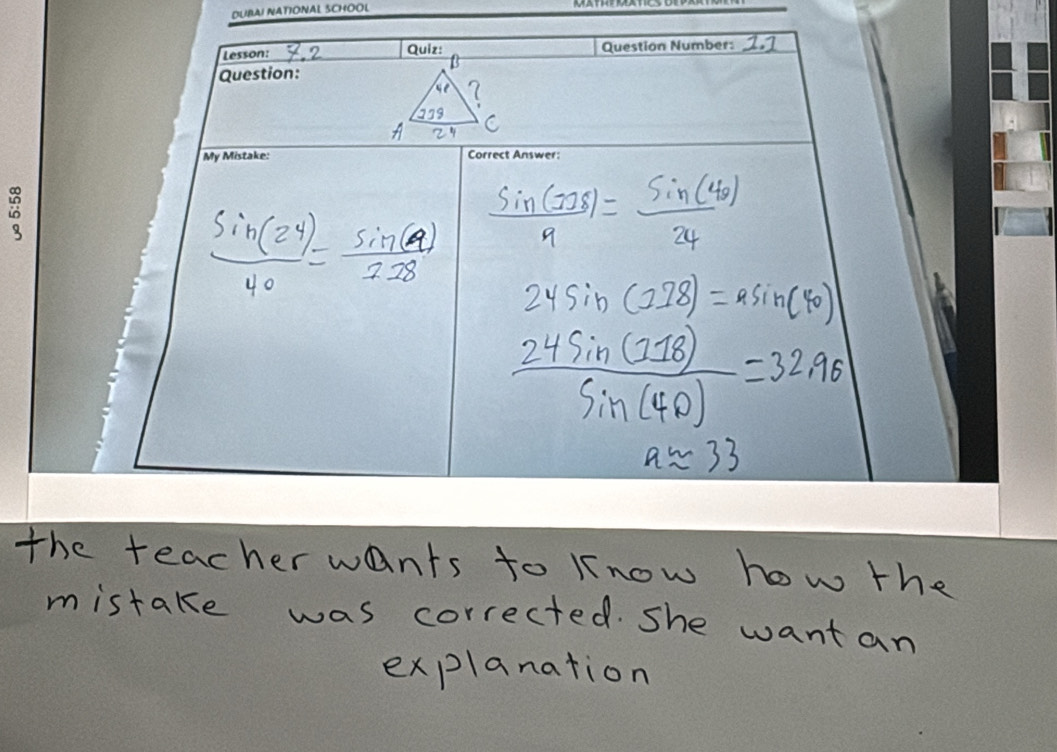 DUBAI NATIONAL SCHOOL
MATHEMATICS DEPARTMENT
Lesson: 7.2 Quiz: Question Number: 1.1
Question:
B
40 ?
118
A 24 C
My Mistake:
sin(24)/40 = sin(a)/118
Correct Answer:
sin(118)/a = sin(40)/24
24 sin (118) = a sin(40)
24 sin (118)/sin (40) = 32.96
a ≈ 33
5:58
the teacher wants to know how the
mistake was corrected. She want an
explanation